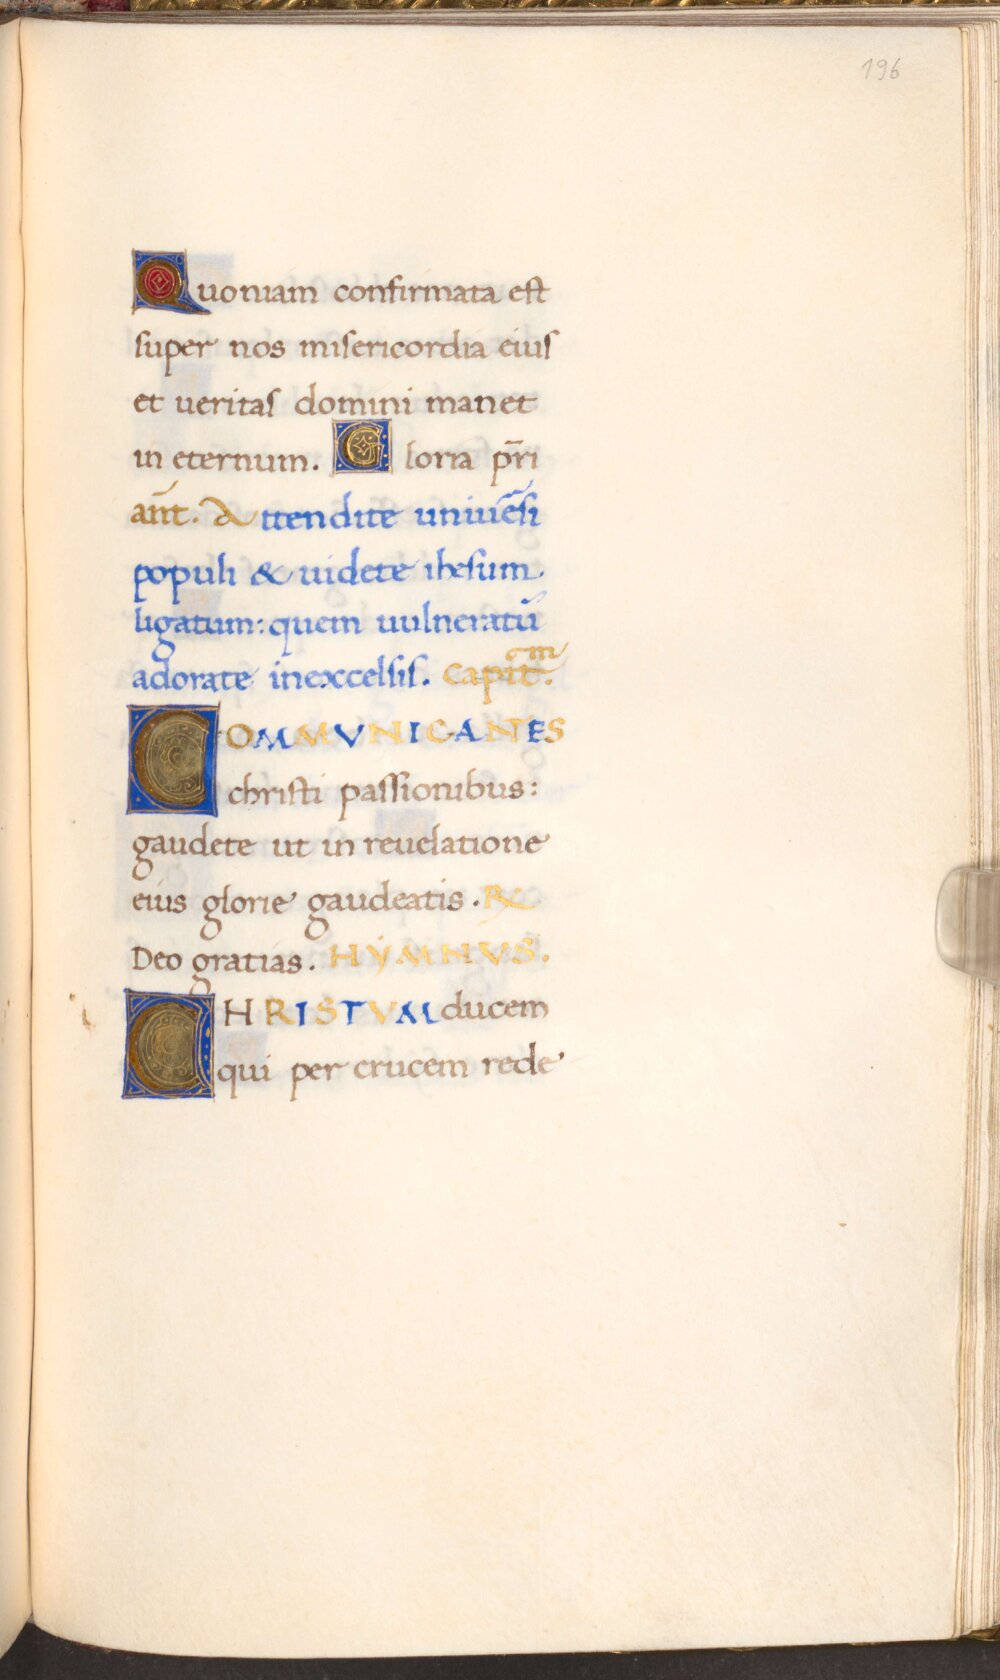 196
Quoniam confirmata est
super nos misericordia eius
et ueritas domini manet
in eternum. Gloria pr̄i
an̄t. Attendite uniue͞rsi
populi & uidete ihesum
ligatum: quem uulneratū
adorate inexcelsis. Capit̄m.
COMMVNICANTES
christi passionibus:
gaudete ut in reuelatione
eius glorie gaudeatis. ℟
Deo gratias. HYMNVS.
CHRISTVM ducem
qui per crucem rede